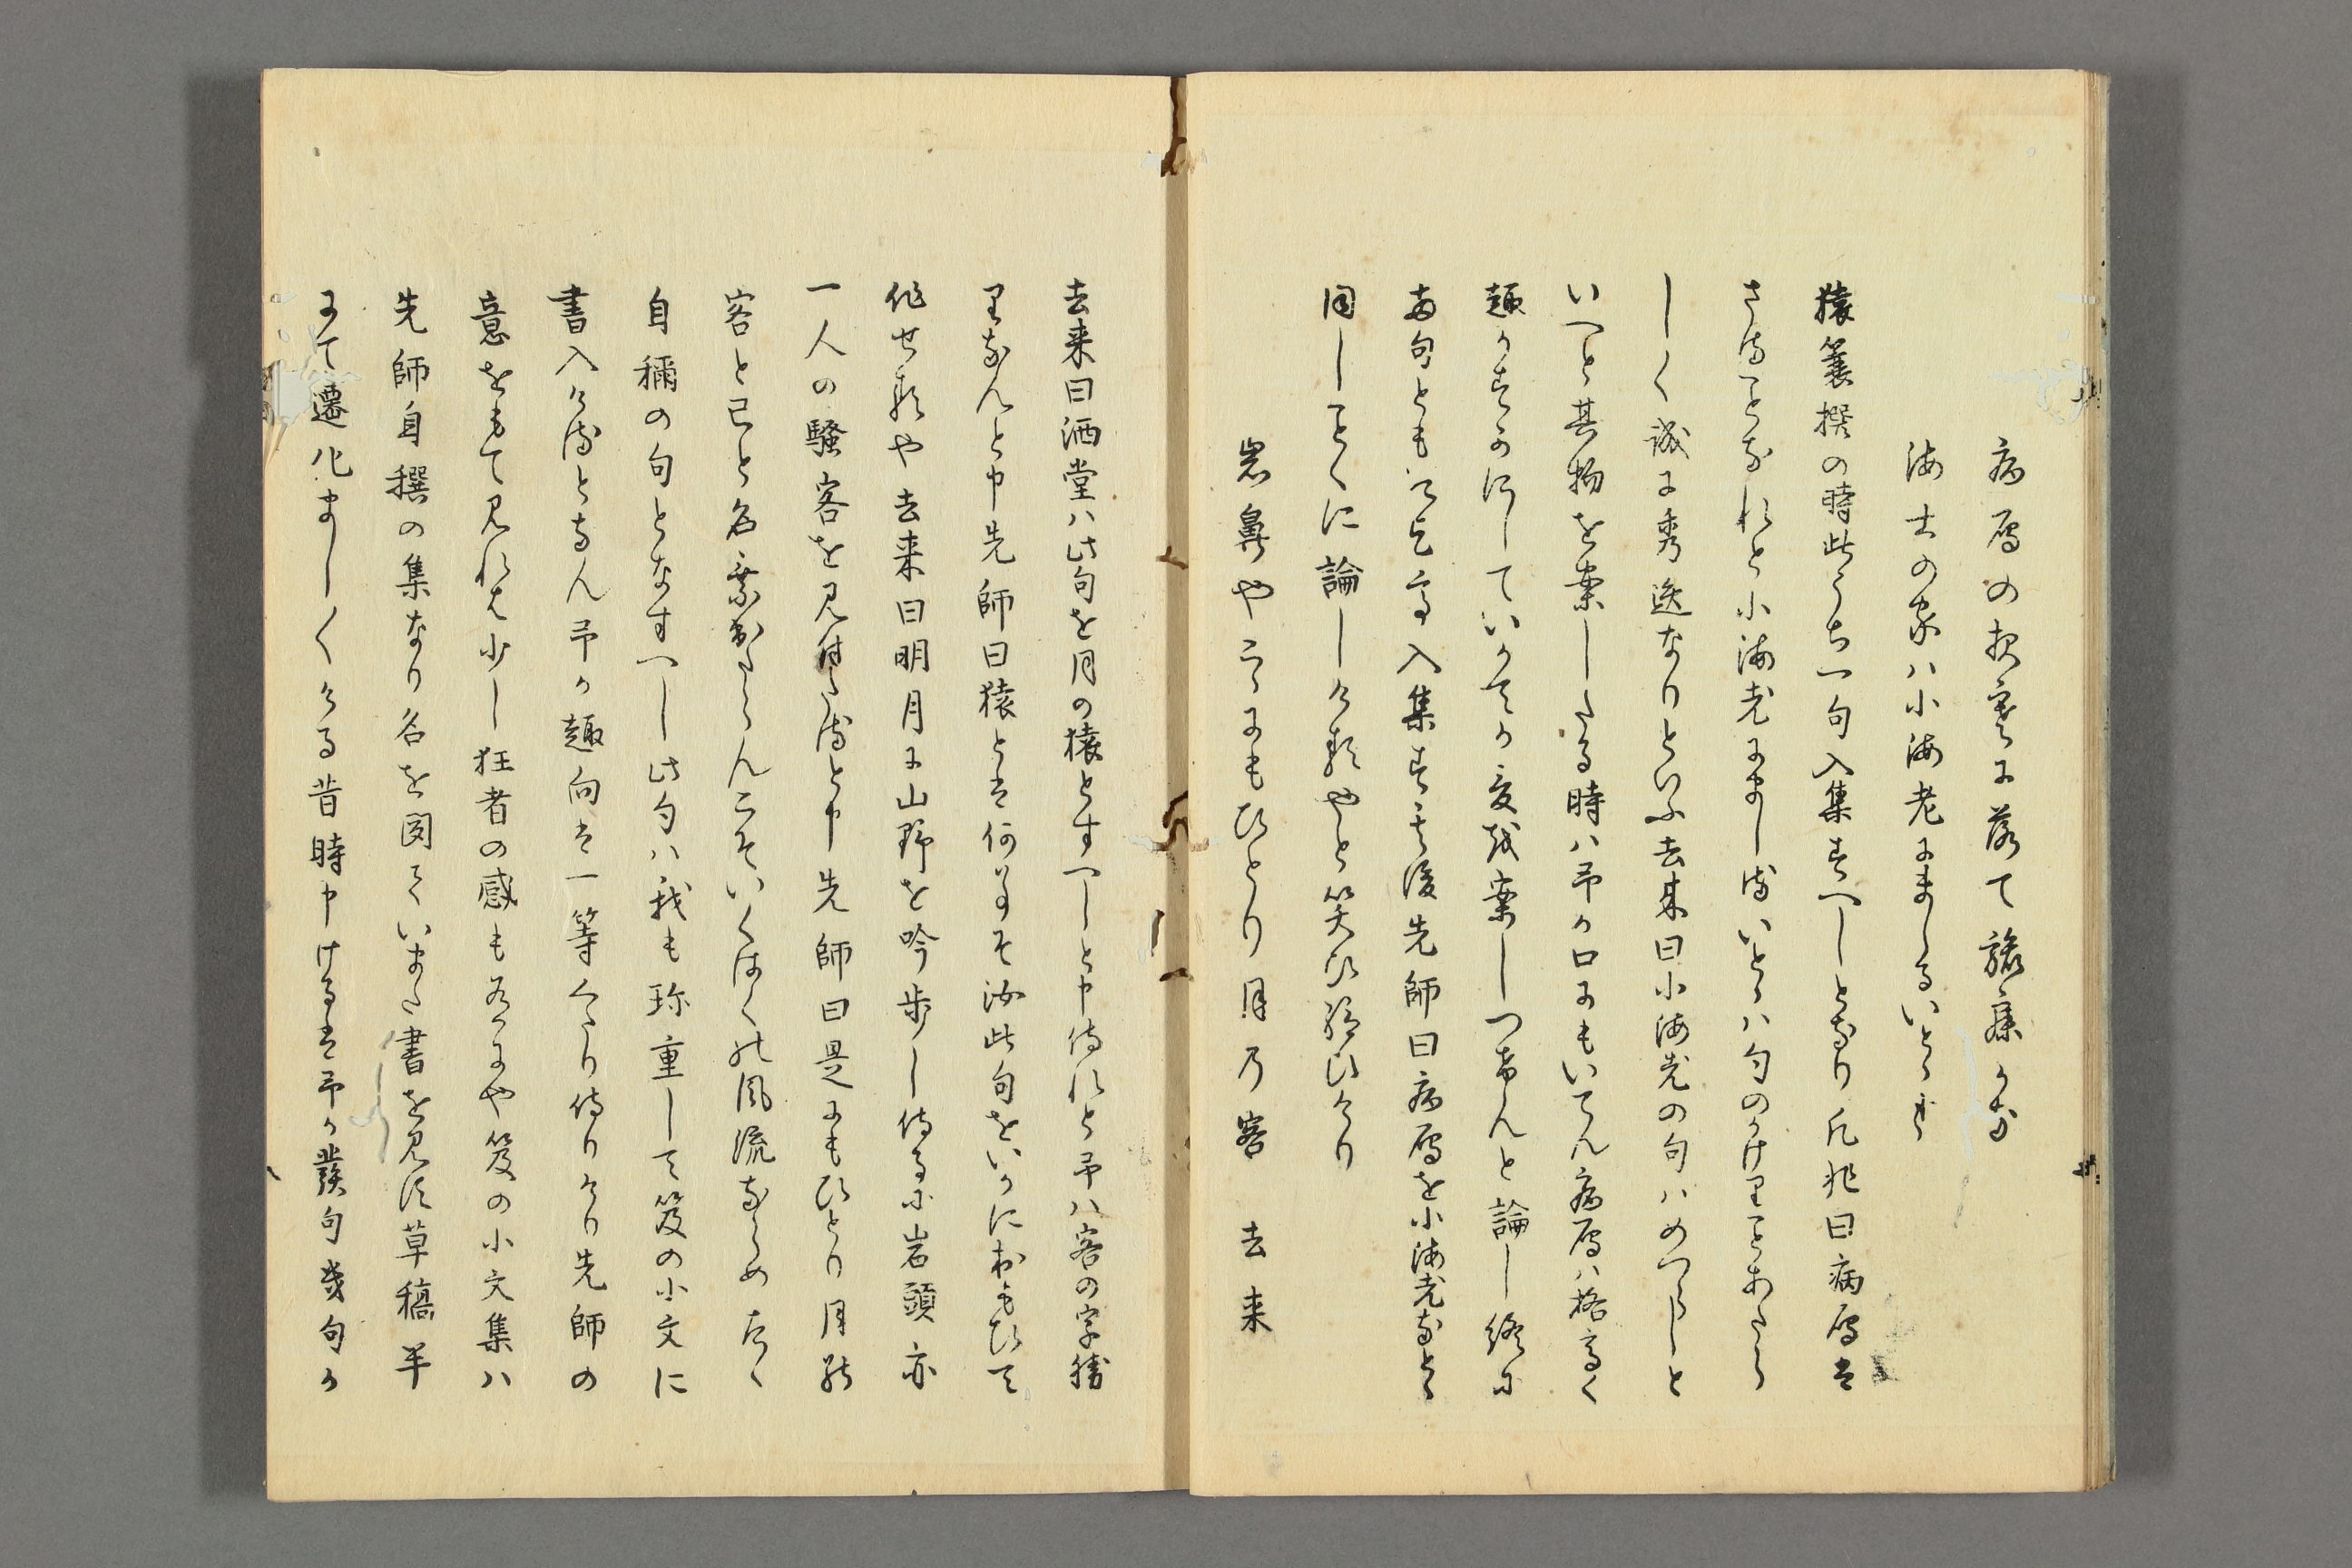 病鴈の夜寒に落て旅寐かな
海士の家ハ小海老にましるいとゝ哉
猿簔撰の時此うち一句入集すへしとなり凡兆曰病鴈は
さることなれと小海老にましるいとゝハ句のかけりことあたら
しく誠に秀逸なりといふ去来曰小海老の句ハめつらしと
いへと其物を案したる時ハ予か口にもいてん病鴈ハ格高く
趣かすかにしていかてか爰を案しつけんと論し終に
両句ともに乞て入集す其後先師曰病鴈を小海老なとゝ
同しことくに論しけるやと笑ひ給ひけり
岩鼻やこゝにもひとり月の客　去来
去来曰洒堂ハ此句を月の猿とすへしと申侍れと予ハ客の字勝
りなんと申先師曰猿とは何事そ汝此句をいかにおもひて
作せるや去来曰明月に山野を吟歩し侍るに岩頭亦
一人の騒客を見付たると申先師曰是にもひとり月の
客と己と名乗出たらんこそいくはくの風流ならめたゝ
自称の句となすへし此句ハ我も珍重して笈の小文に
書入けるとなん予か趣向は一等くたり侍りけり先師の
意をもて見れは少し狂者の感も有にや笈の小文集ハ
先師自撰の集なり名を聞ていまた書を見す草稿半
にて遷化ましましける昔時申けるは予か発句幾句か